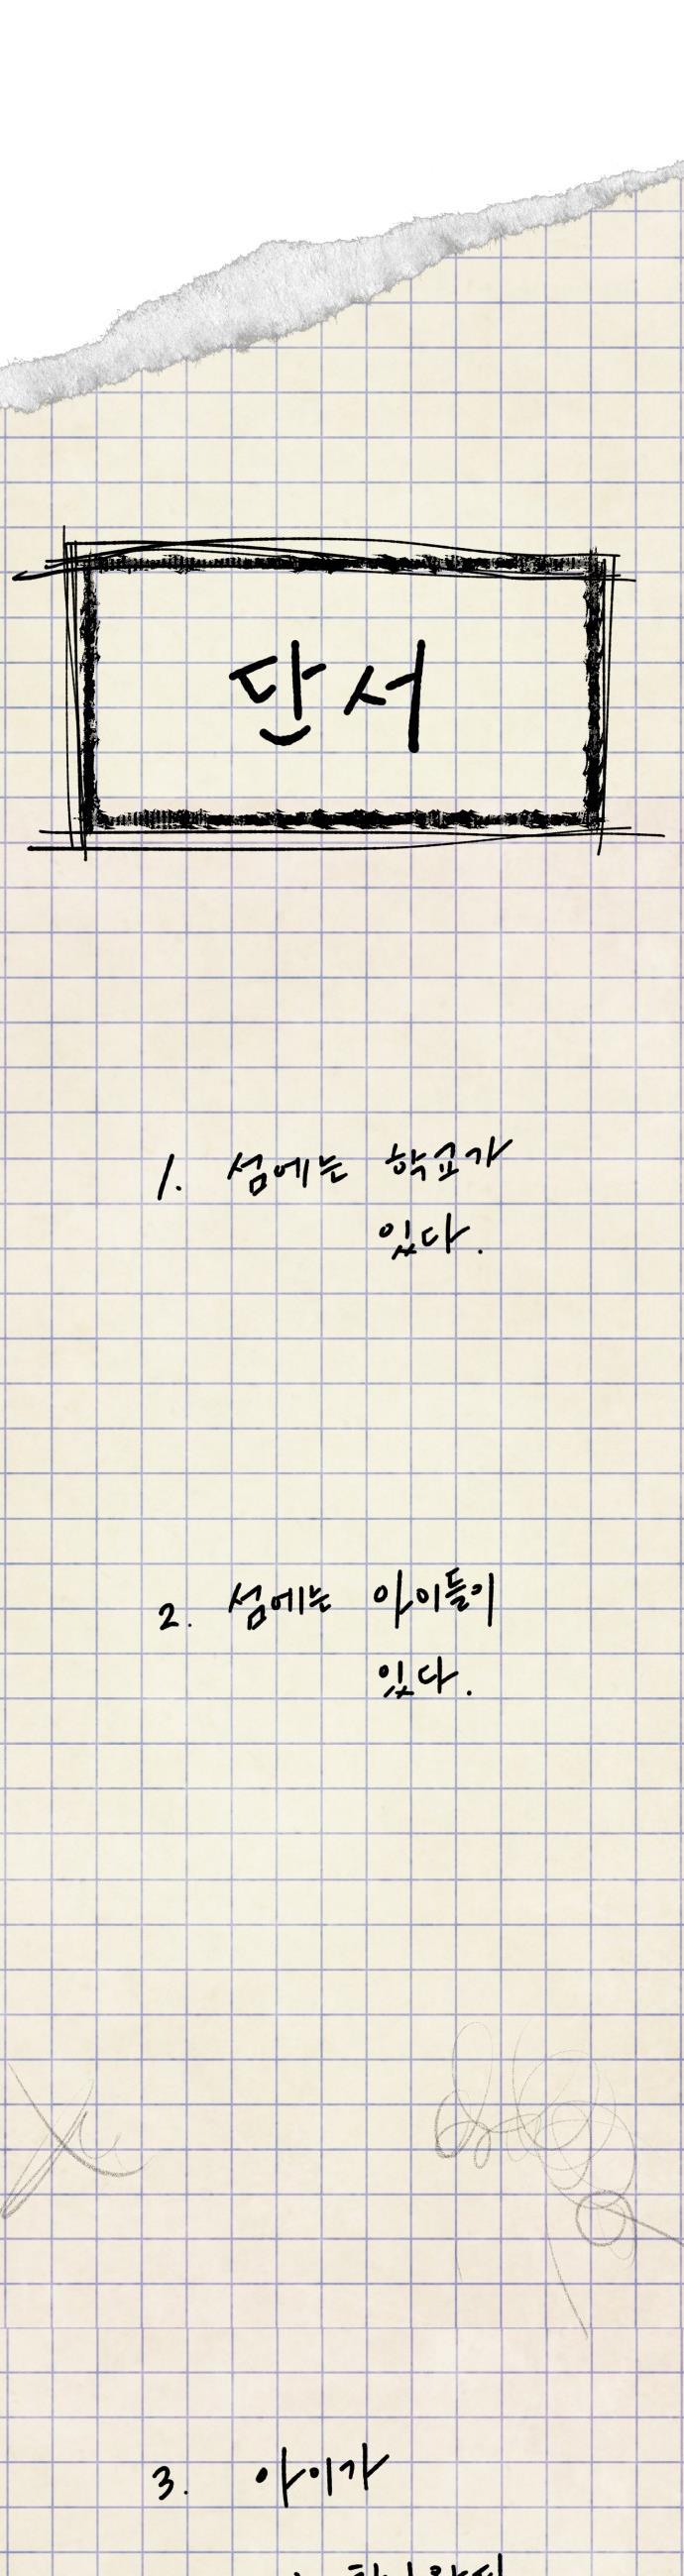 단서
1. 섬에는 학교가
있다.
2. 섬에는 아이들이
있다.
3. 아이가